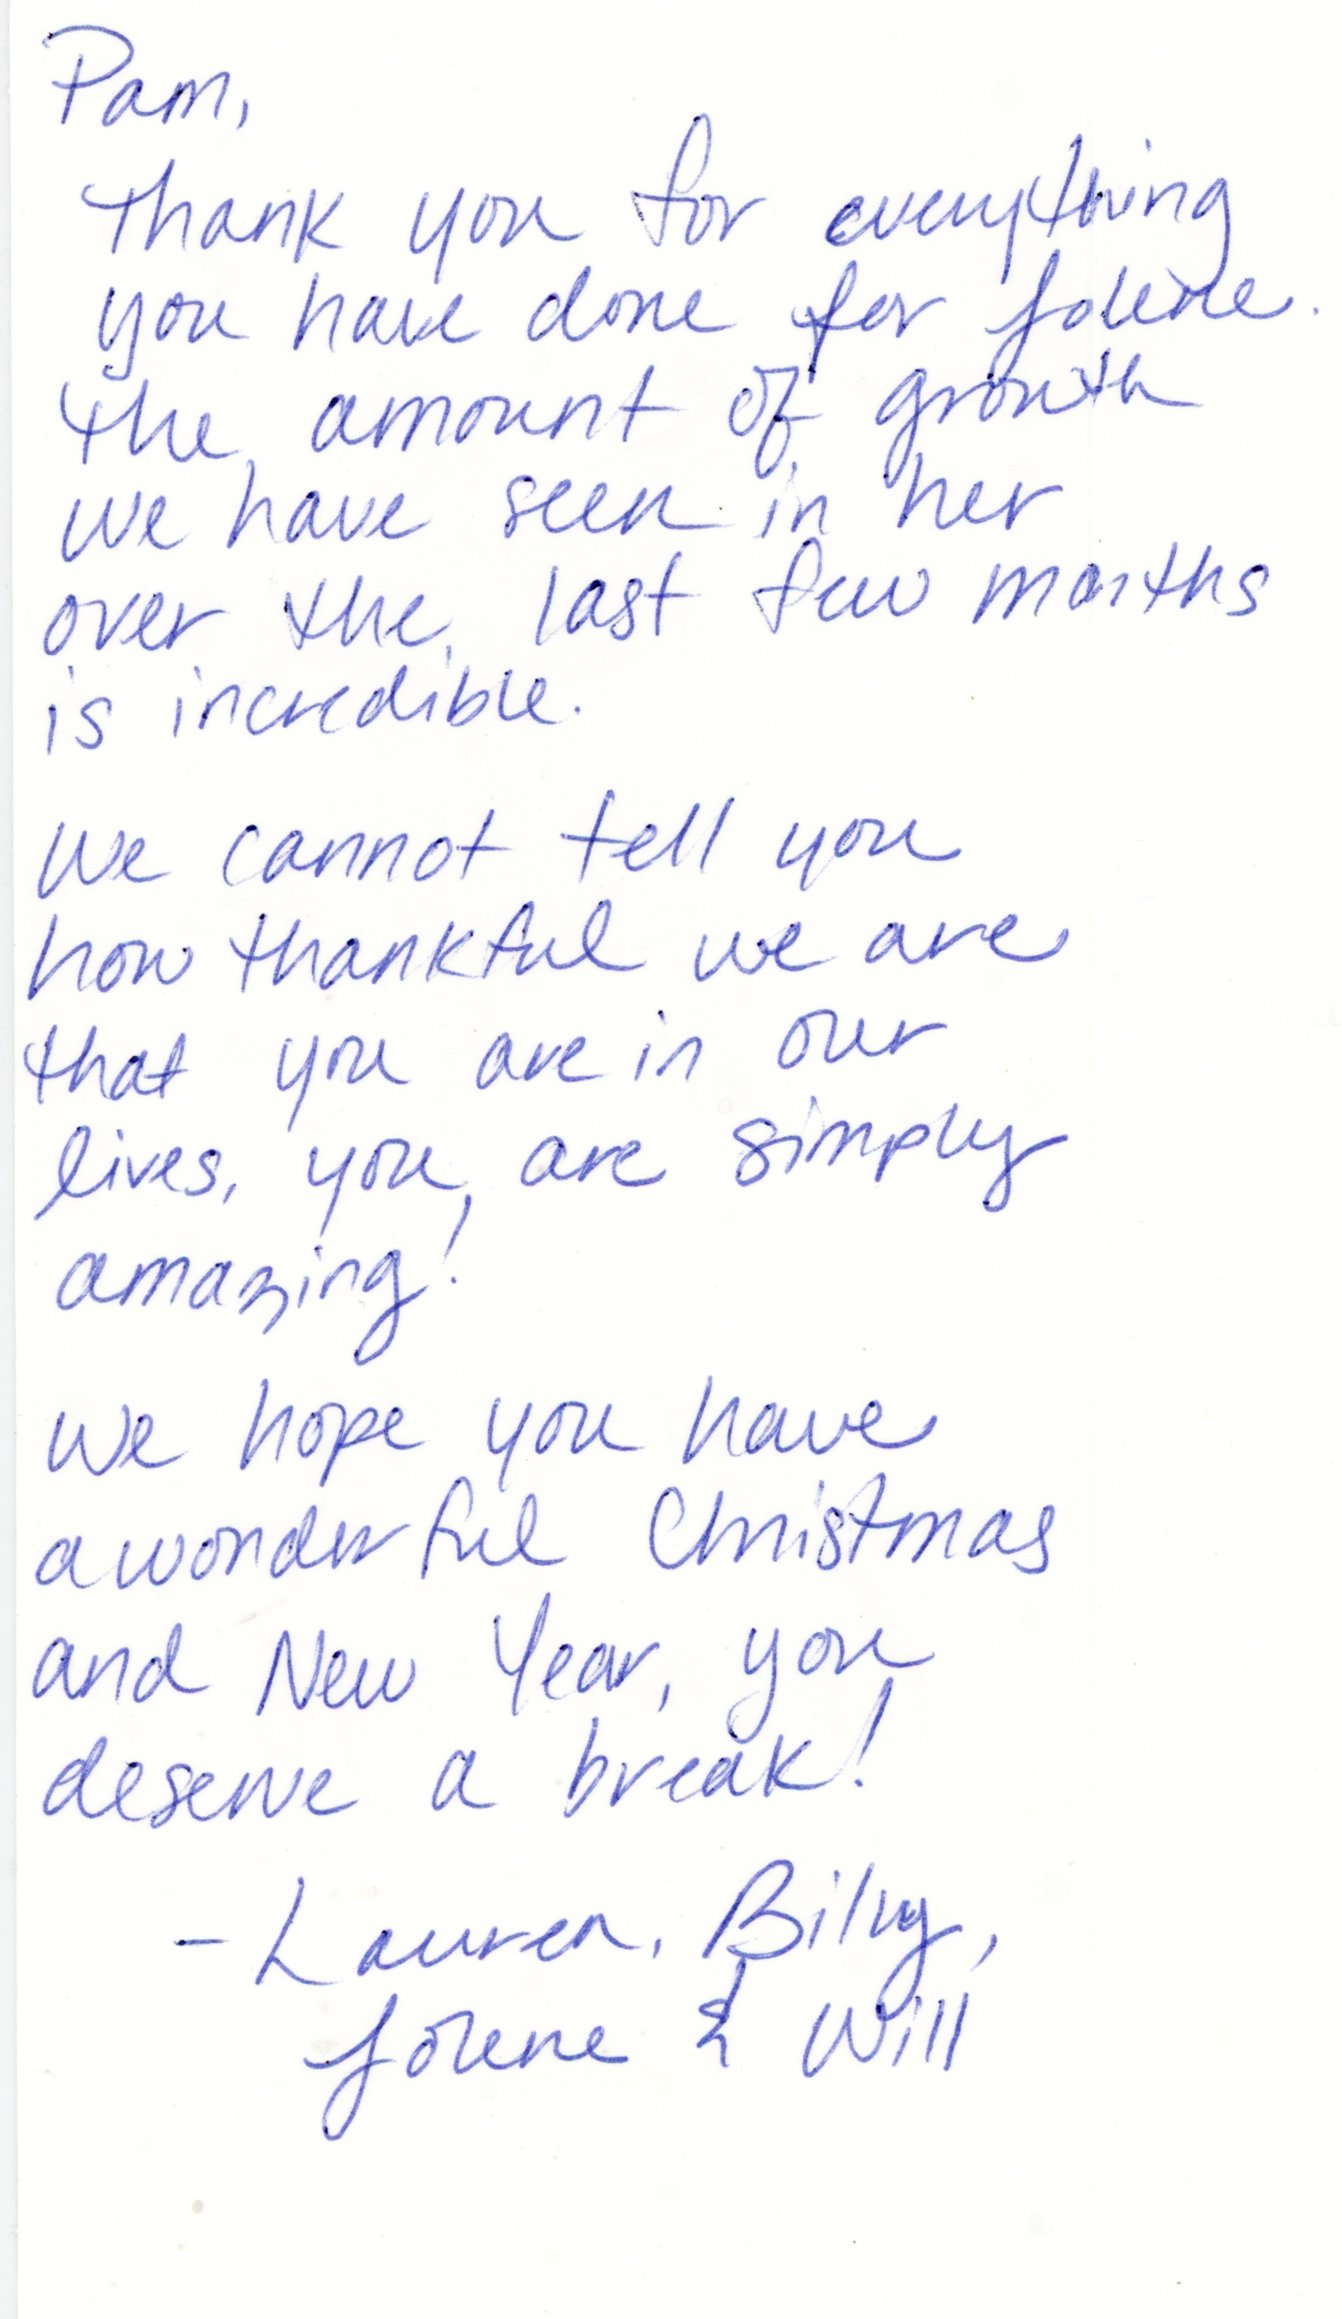 Pam,
Thank you for everything
you have done for Jolene.
The amount of growth
we have seen in her
over the last few months
is incredible.
We cannot tell you
how thankful we are
that you are in our
lives, you are simply
amazing!
We hope you have
a wonderful Christmas
and New Year, you
deserve a break!
- Lauren, Billy,
Jolene & Will